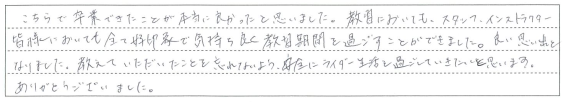 こちらで卒業できたことが本当に良かったと思いました。教習においても、スタッフ、インストラクター
皆様においても全て好印象で気持ち良く教習期間を過ごすことができました。良い思い出と
なりました。教えていただいたことを忘れないよう、安全にライダー生活を過ごしていきたいと思います。
ありがとうございました。